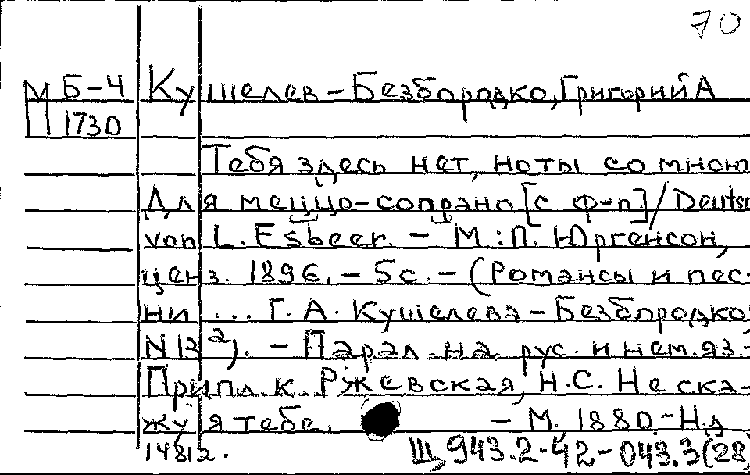 70
М Б-4 Кушелев-Безбородко, Григорий А
1730
Тебя здесь нет, но ты со мною
Для меццо-сопрано [с ф-п] / Deutsc
von L. Esbeer. - М.: П. Юргенсон,
ценз. 1896. - 5с. - (Романсы и пес-
ни ... Г. А. Кушелева-Безбородко
N 12²). - Парал. на рус. и нем. яз. -
Припл. к. Ржевская, Н.С. Не ска-
жу я тебе. - М. 1880. - Н.д
1481г. Щ 943.2-42-043.3(28